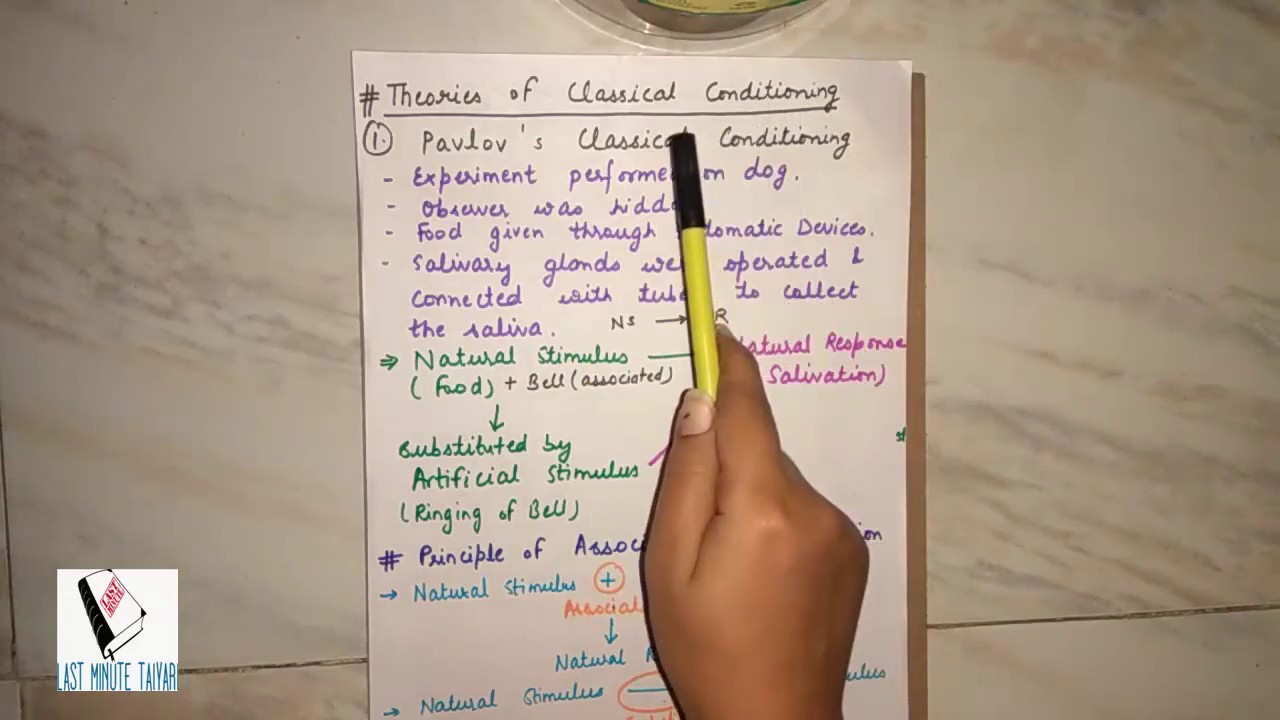 # Theories of Classical Conditioning
1. Pavlov's Classical Conditioning
- Experiment performed on dog.
- Observer was
- Food given through Devices.
- Salivary glands operated &
connected with to collect
the saliva. NS → R
⇒ Natural Stimulus Response
(Food) + Bell (associated) Salivation)
↓
Substituted by
Artificial Stimulus
(Ringing of Bell)
# Principle of
→ Natural Stimulus +
↓
Natural
→ Natural Stimulus
LAST MINUTE
LAST MINUTE TAIYARI